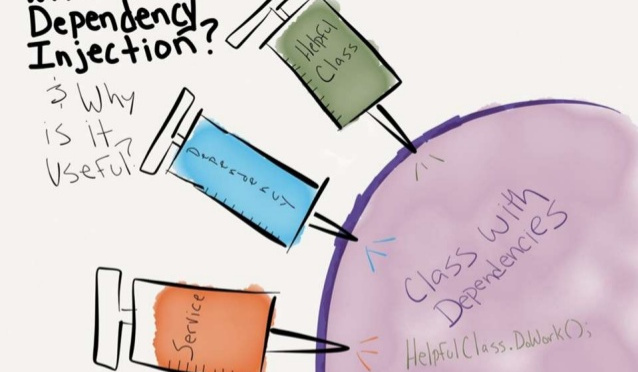 Dependency
Injection?
& Why
is it
Useful?
Helpful
Class
DEPENDENCY
Service
Class with
Dependencies
HelpfulClass.DoWork();